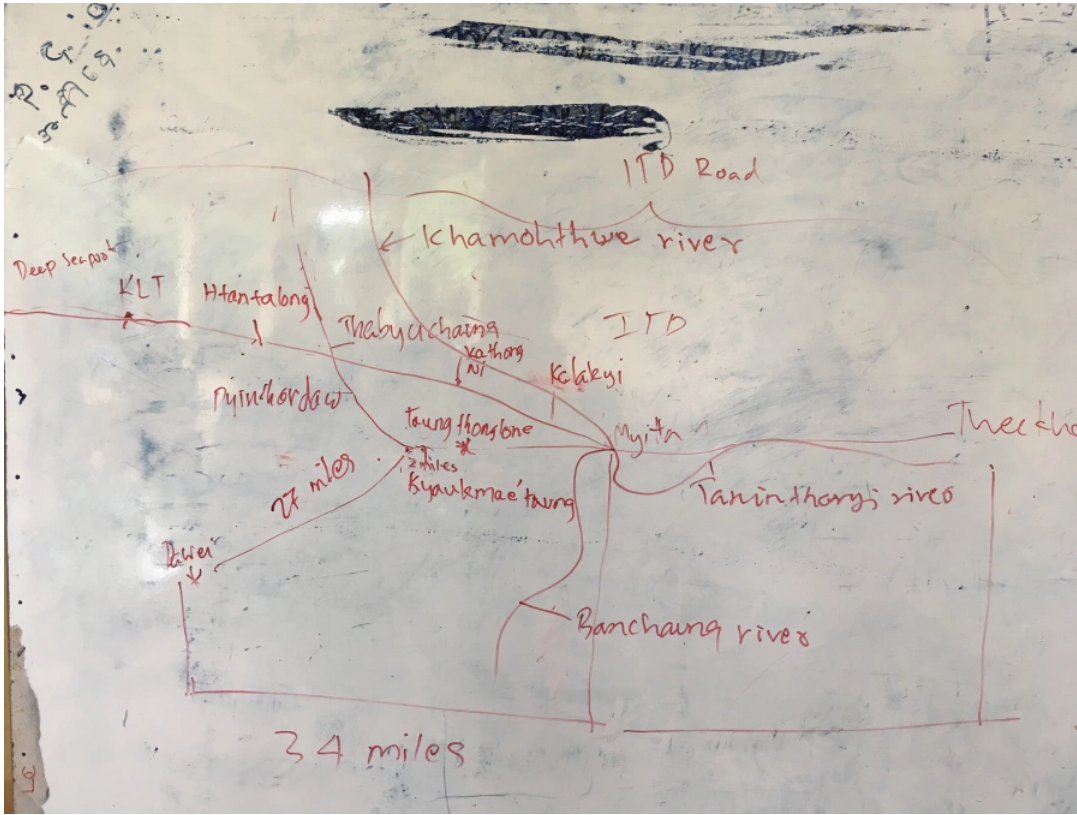 ITD Road
Khamohthwe river
Deep Seaport
KLT
Htantalong
ITD
Thabyuchaung
Kathong
Ni
Kalakyi
Pyinthordaw
Taungthonglone
Myitta
Theekho
27 miles
2 miles
Kyaukmae'taung
Taninthoryi river
Dawei
Banchaung river
34 miles